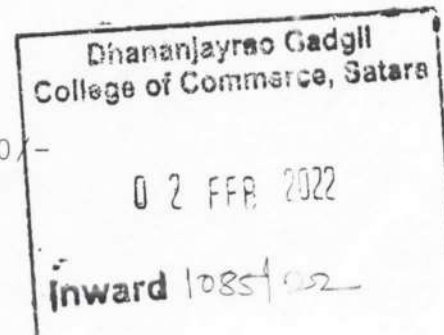 Dhananjayrao Gadgil
College of Commerce, Satara
0/-
02 FEB 2022
Inward 1085/22